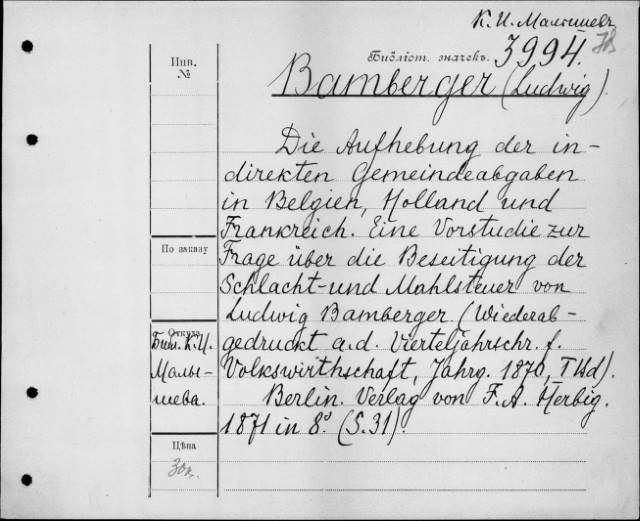 К. И. Малышевъ
Библіот. значекъ. 3994.
Инв.
№
Bamberger (Ludwig).
Die Aufhebung der in-
direkten Gemeindeabgaben
in Belgien, Holland und
Frankreich. Eine Vorstudie zur
По заказу
Frage über die Beseitigung der
Schlacht- und Mahlsteuer von
Ludwig Bamberger. (Wiederab-
Откуда
Библ. К. И.
Малы-
шева.
gedruckt a. d. Vierteljahrschr. f.
Volkswirthschaft, Jahrg. 1870, I Bd).
Berlin. Verlag von F. A. Herbig.
1871 in 8º. (S. 31).
Цѣна
30к.